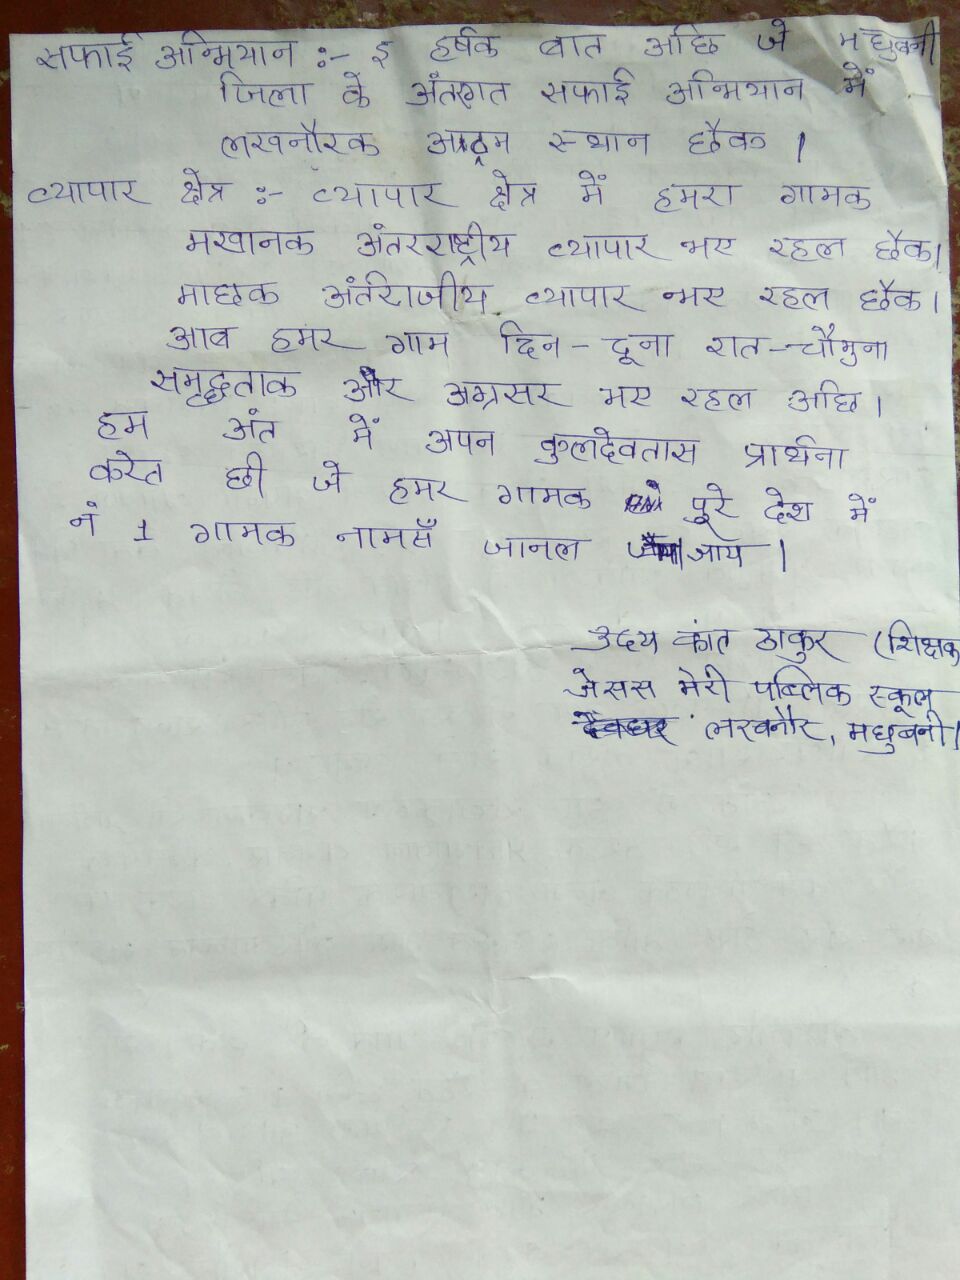 सफाई अभियान :- इ हर्षक बात अछि जे मधुबनी
जिला के अंतरगत सफाई अभियान में
लखनौरक आठम स्थान छैक ।
व्यापार क्षेत्र :- व्यापार क्षेत्र में हमरा गामक
मखानक अंतरराष्ट्रीय व्यापार भए रहल छैक।
माछक अंर्तराजीय व्यापार भए रहल छैक ।
आब हमर गाम दिन - दूना रात - चौगुना
समृद्धताक और अग्रसर भए रहल अछि ।
हम अंत में अपन कुलदेवतास प्रार्थना
करेत छी जे हमर गामक पूरे देश में
नं 1 गामक नामसँ जानल जाय ।
उदय कांत ठाकुर (शिक्षक
जेसस मेरी पब्लिक स्कूल
लखनौर, मधुबनी।